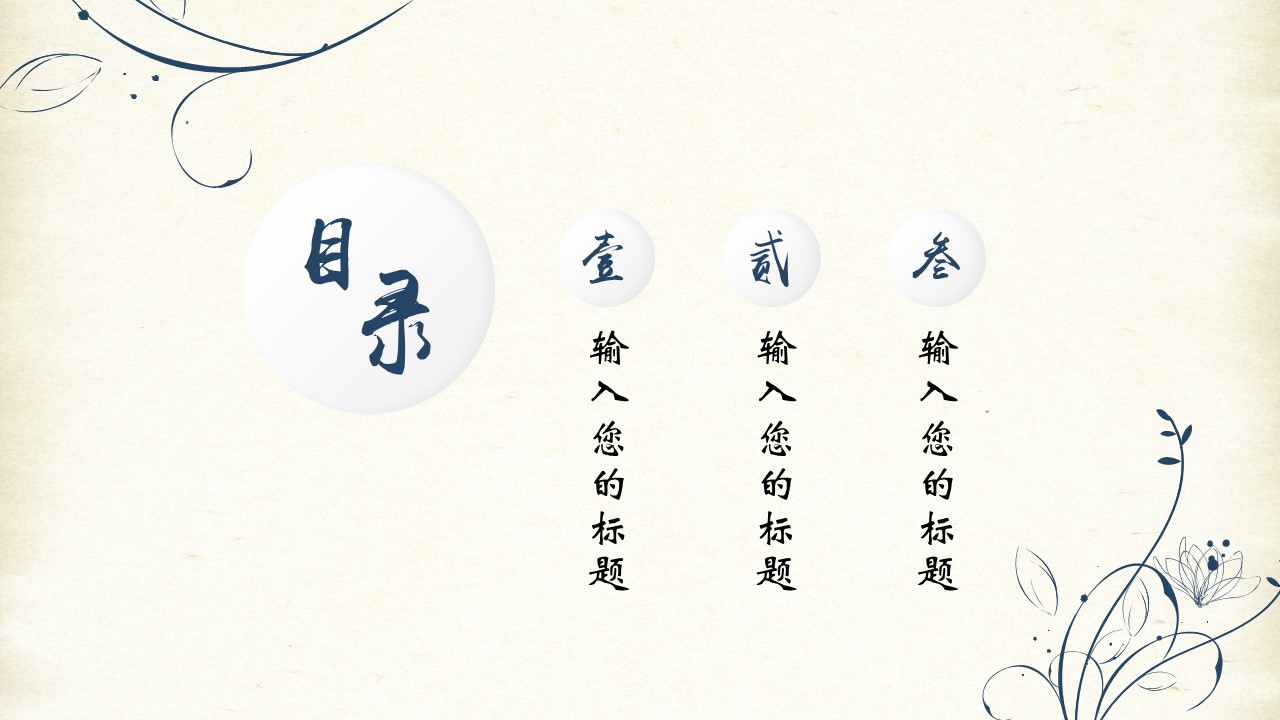 目录
壹
输入您的标题
贰
输入您的标题
叁
输入您的标题